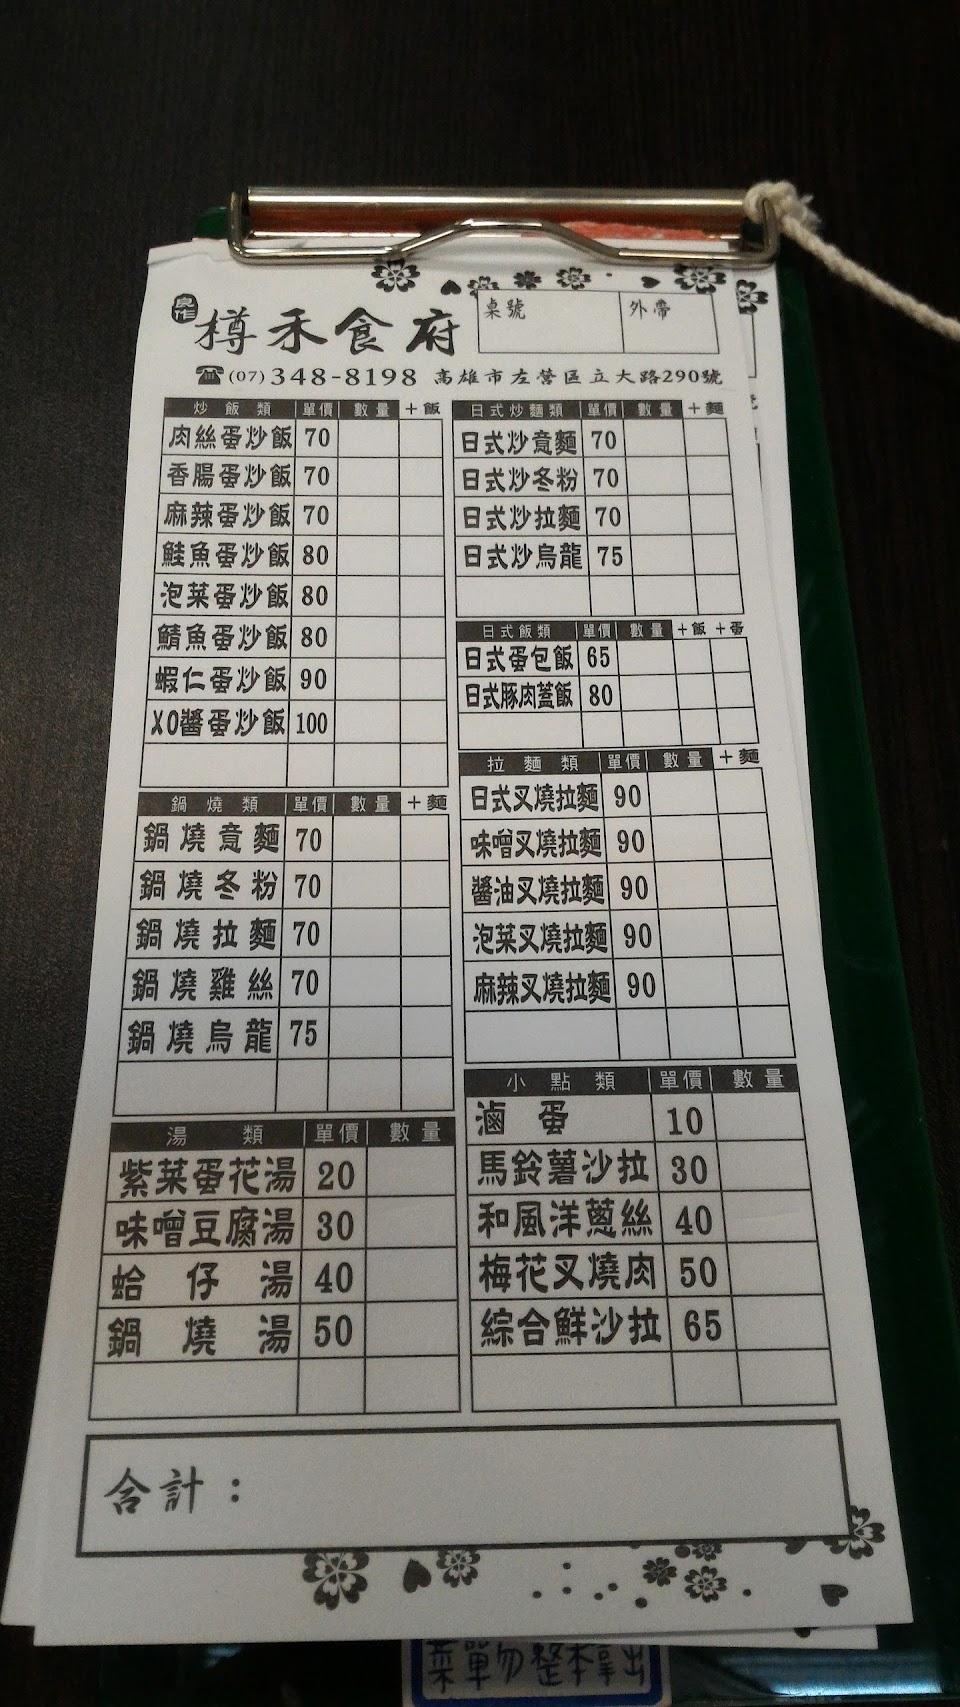 良作
樽禾食府
桌號 外帶
(07)348-8198 高雄市左營區立大路290號
炒飯類 單價 數量 +飯
肉絲蛋炒飯 70
香腸蛋炒飯 70
麻辣蛋炒飯 70
鮭魚蛋炒飯 80
泡菜蛋炒飯 80
鯖魚蛋炒飯 80
蝦仁蛋炒飯 90
XO醬蛋炒飯 100
鍋燒類 單價 數量 +麵
鍋燒意麵 70
鍋燒冬粉 70
鍋燒拉麵 70
鍋燒雞絲 70
鍋燒烏龍 75
湯類 單價 數量
紫菜蛋花湯 20
味噌豆腐湯 30
蛤仔湯 40
鍋燒湯 50
日式炒麵類 單價 數量 +麵
日式炒意麵 70
日式炒冬粉 70
日式炒拉麵 70
日式炒烏龍 75
日式飯類 單價 數量 +飯 +蛋
日式蛋包飯 65
日式豚肉蓋飯 80
拉麵類 單價 數量 +麵
日式叉燒拉麵 90
味噌叉燒拉麵 90
醬油叉燒拉麵 90
泡菜叉燒拉麵 90
麻辣叉燒拉麵 90
小點類 單價 數量
滷蛋 10
馬鈴薯沙拉 30
和風洋蔥絲 40
梅花叉燒肉 50
綜合鮮沙拉 65
合計：
菜單勿整本拿出